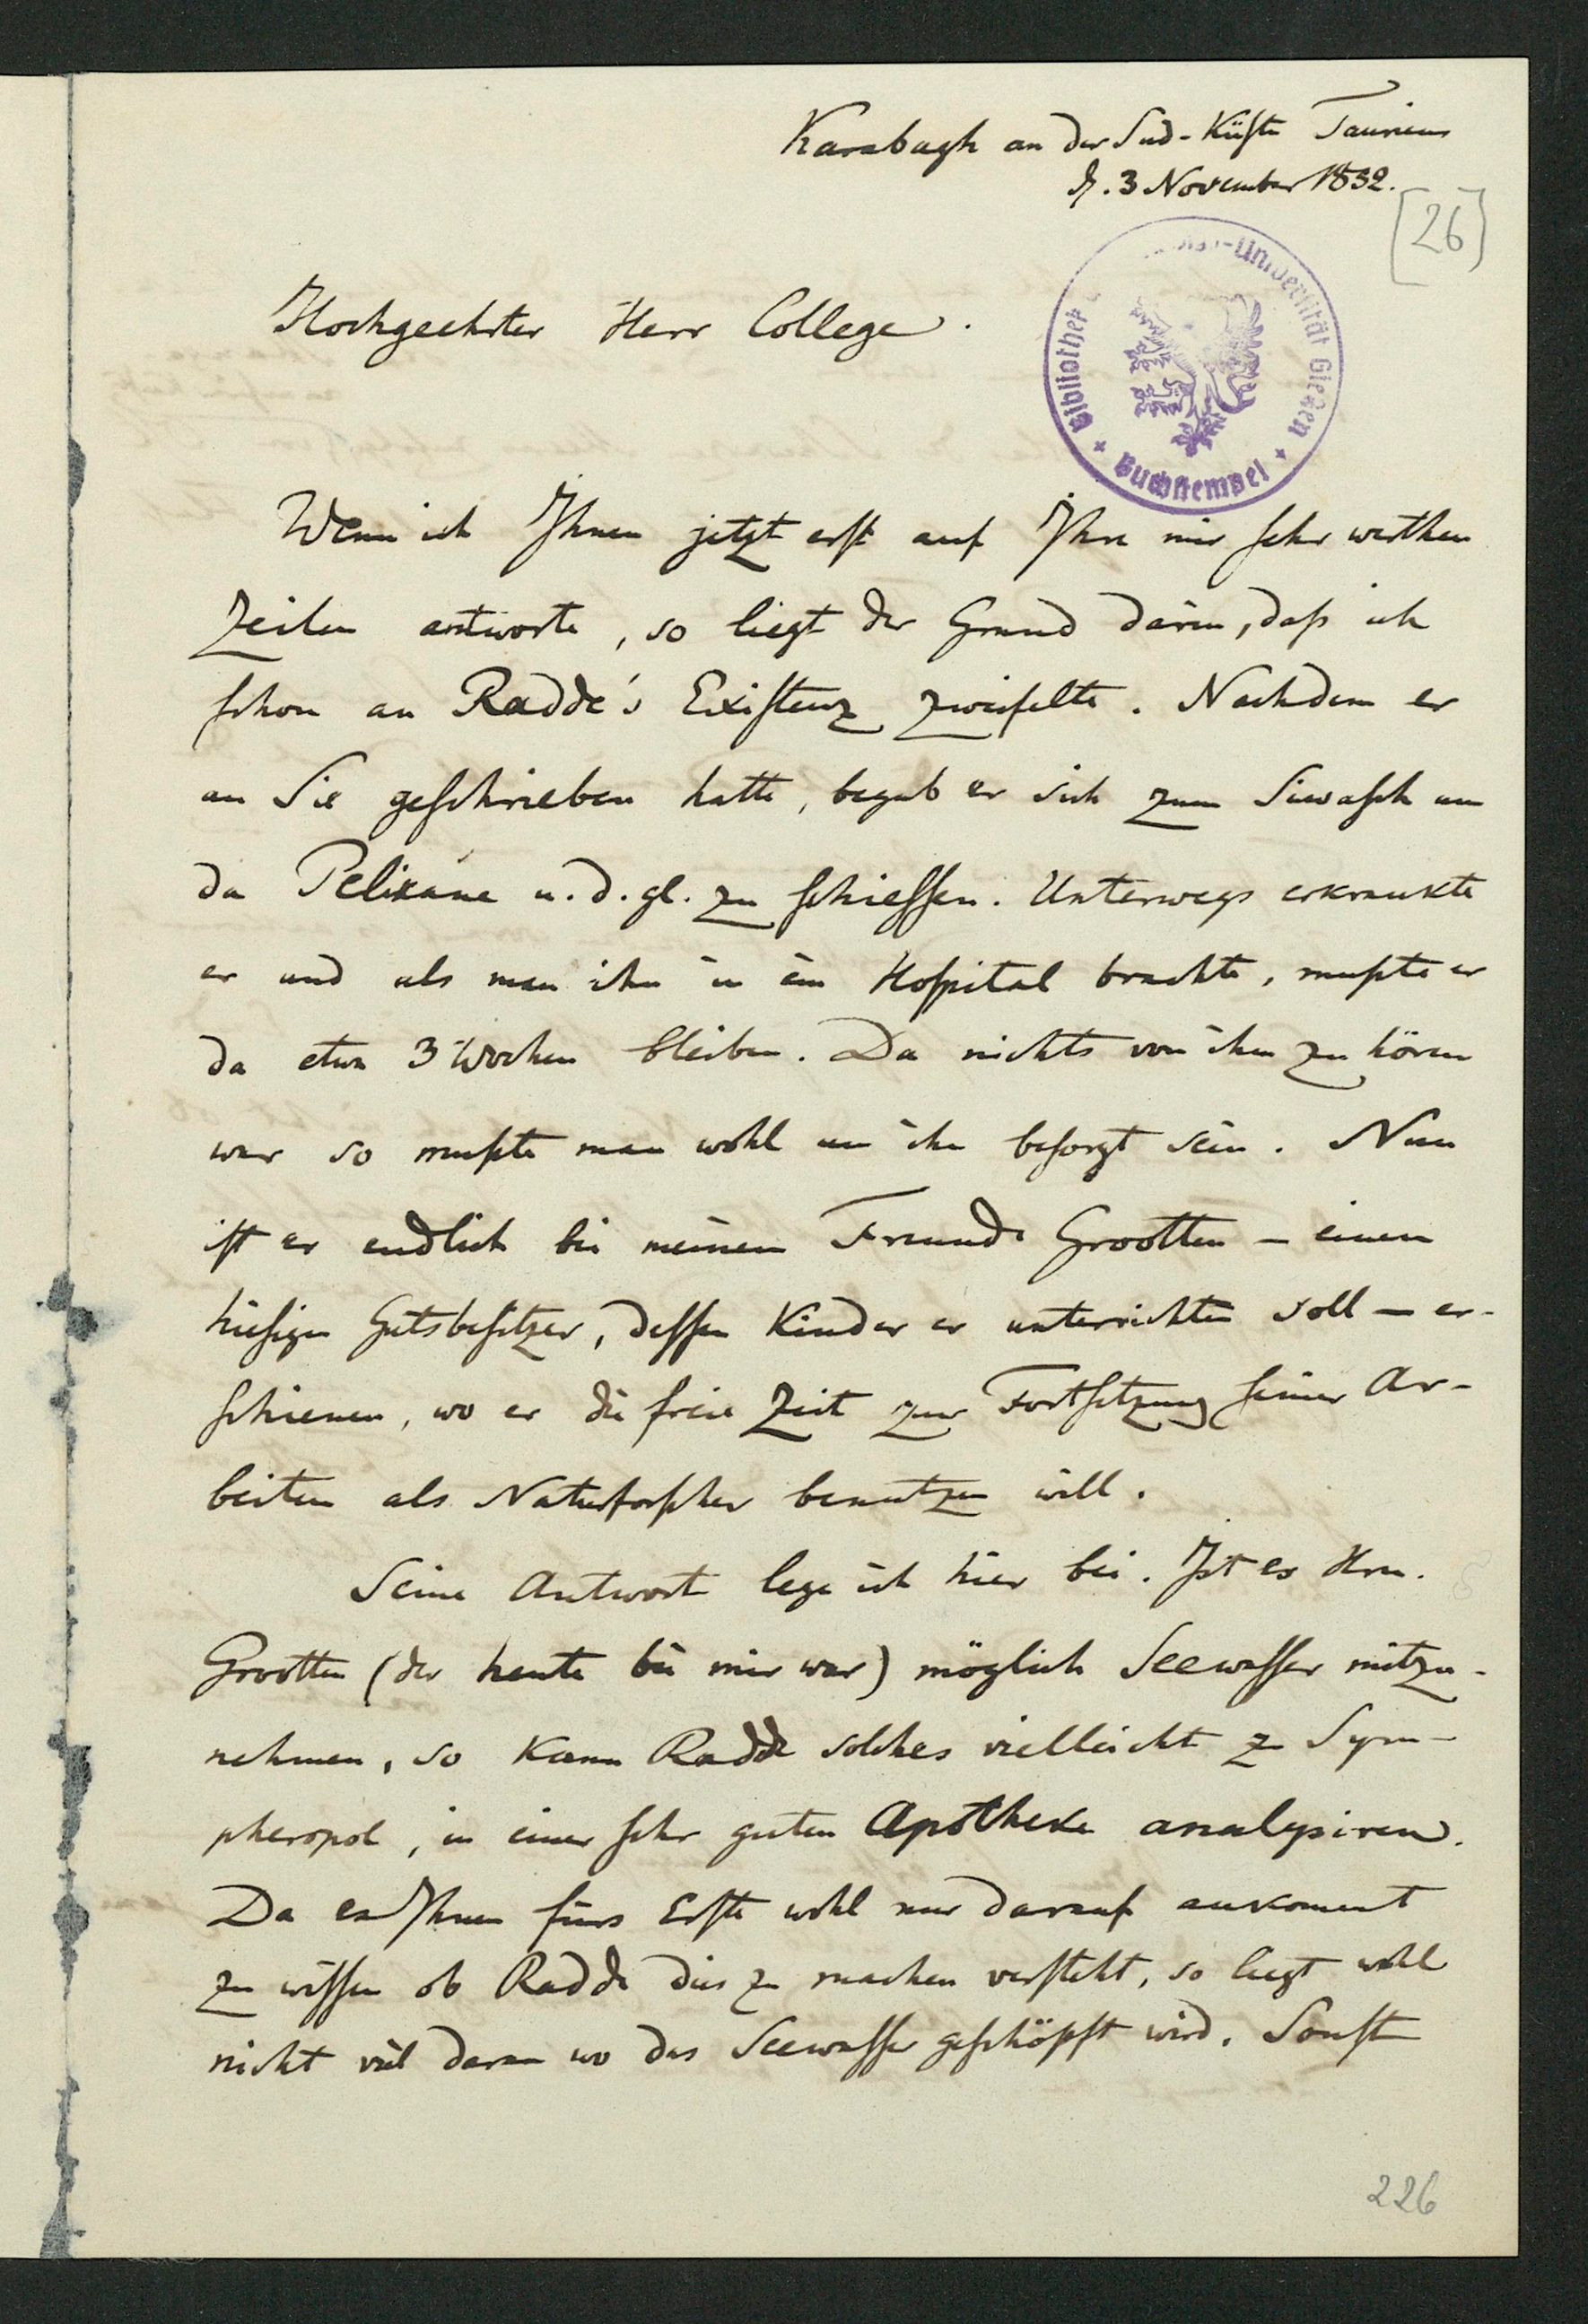 Karabagh an der Süd-Küste Tauriens
d. 3 November 1832.
[26]
Bibliothek Universität Gießen
Buchstempel
Hochgeehrter Herr College.
Wenn ich Ihnen jetzt erst auf Ihre mir sehr werthen
Zeilen antworte, so liegt der Grund darin, daß ich
schon an Radde's Existenz zweifelte. Nachdem er
an Sie geschrieben hatte, begab er sich zum Siwasch um
da Pelikane u. d. gl. zu schiessen. Unterwegs erkrankte
er und als man ihn in ein Hospital brachte, mußte er
da etwa 3 Wochen bleiben. Da nichts von ihm zu hören
war so mußte man wohl um ihn besorgt sein. Nun
ist er endlich bei meinem Freunde Grootten – einem
hiesigen Gutsbesitzer, dessen Kinder er unterrichten soll – er-
schienen, wo er die freie Zeit zur Fortsetzung seiner Ar-
beiten als Naturforscher benutzen will.
Seine Antwort lege ich hier bei. Ist es Hrn.
Grootten (der heute bei mir war) möglich Seewasser mitzu-
nehmen, so kann Radde solches vielleicht zu Sym-
pheropol, in einer sehr guten Apotheke analysiren.
Da es Ihnen fürs Erste wohl nur darauf ankomt
zu wissen ob Radde dies zu machen versteht, so liegt wohl
nicht viel daran wo das Seewasser geschöpft wird. Sonst
226